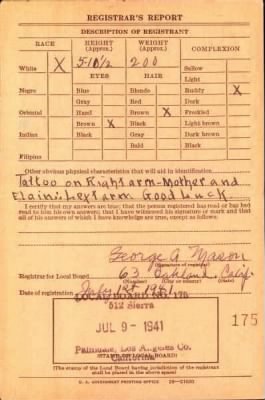 REGISTRAR'S REPORT
DESCRIPTION OF REGISTRANT
RACE HEIGHT (Approx.) WEIGHT (Approx.) COMPLEXION
White X 5-10½ 200 Sallow
EYES HAIR Light
Negro Blue Blonde Ruddy X
Gray Red Dark
Oriental Hazel Brown X Freckled
Brown X Black Light brown
Indian Black Gray Dark brown
Bald Black
Filipino
Other obvious physical characteristics that will aid in identification
Tattoo on Right arm-Mother and
Elain: Left arm Good Luck.
I certify that my answers are true; that the person registered has read or has had
read to him his own answers; that I have witnessed his signature or mark and that
all of his answers of which I have knowledge are true, except as follows:
George A. Mason
(Signature of registrar)
Registrar for Local Board 63 Oakland, Calif
(Number) (City or county) (State)
Date of registration July 1st 1941
LOCAL BOARD NO. 175
512 Sierra
JUL 9 - 1941
175
Palmdale, Los Angeles Co.
California
(STAMP OF LOCAL BOARD)
(The stamp of the Local Board having jurisdiction of the registrant
shall be placed in the above space)
U. S. GOVERNMENT PRINTING OFFICE 16-21630